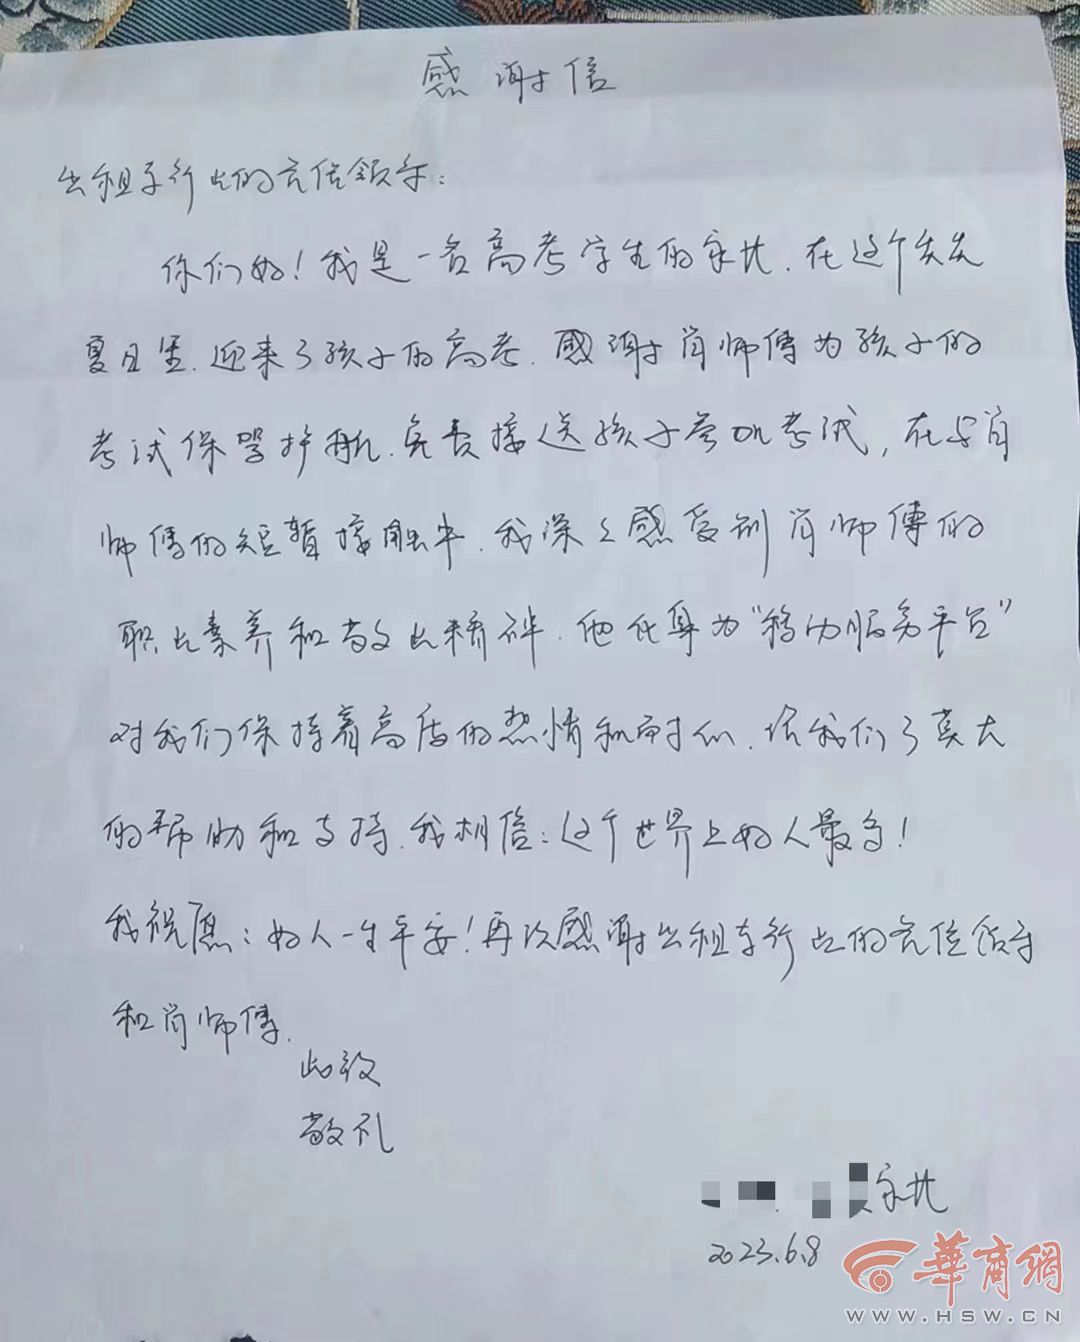 感谢信
出租车行业的各位领导：
你们好！我是一名高考学生的家长．在这个炎炎
夏日里．迎来了孩子的高考．感谢肖师傅为孩子的
考试保驾护航．免费接送孩子参加考试，在与肖
师傅的短暂接触中．我深深感受到肖师傅的
职业素养和敬业精神．他化身为“移动服务平台”
对我们保持着高度的热情和耐心．给我们了莫大
的帮助和支持．我相信：这个世界上好人最多！
我祝愿：好人一生平安！再次感谢出租车行业的各位领导
和肖师傅．
此致
敬礼
家长
2023.6.8
華商網
WWW.HSW.CN